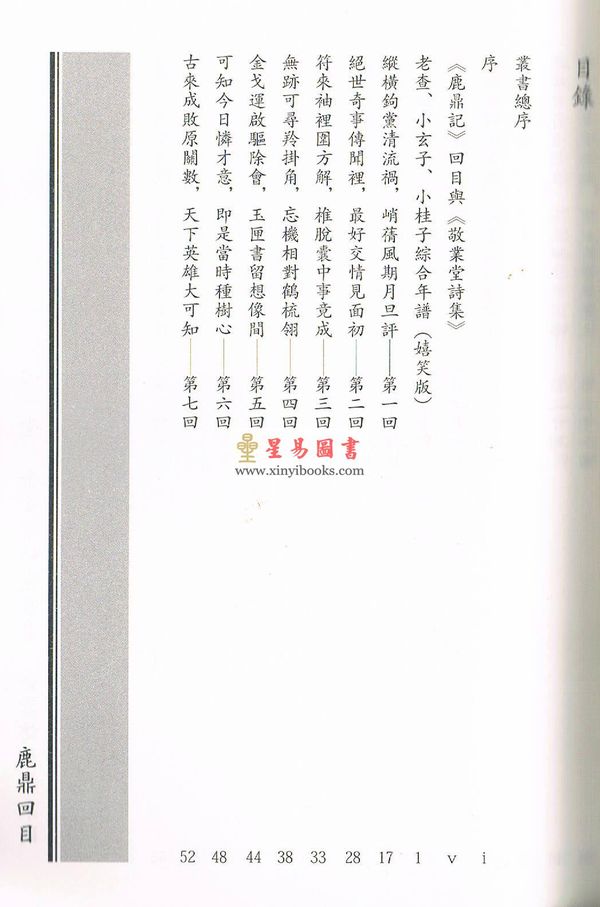 目錄
叢書總序
序 i
《鹿鼎記》回目與《敬業堂詩集》 v
老查、小玄子、小桂子綜合年譜（嬉笑版） 1
縱橫鉤黨清流禍，峭蒨風期月旦評——第一回 17
絕世奇事傳聞裡，最好交情見面初——第二回 28
符來袖裡圍方解，椎脫囊中事竟成——第三回 33
無跡可尋羚掛角，忘機相對鶴梳翎——第四回 38
金戈運啟驅除會，玉匣書留想像間——第五回 44
可知今日憐才意，即是當時種樹心——第六回 48
古來成敗原關數，天下英雄大可知——第七回 52
鹿鼎回目
星易圖書
www.xinyibooks.com